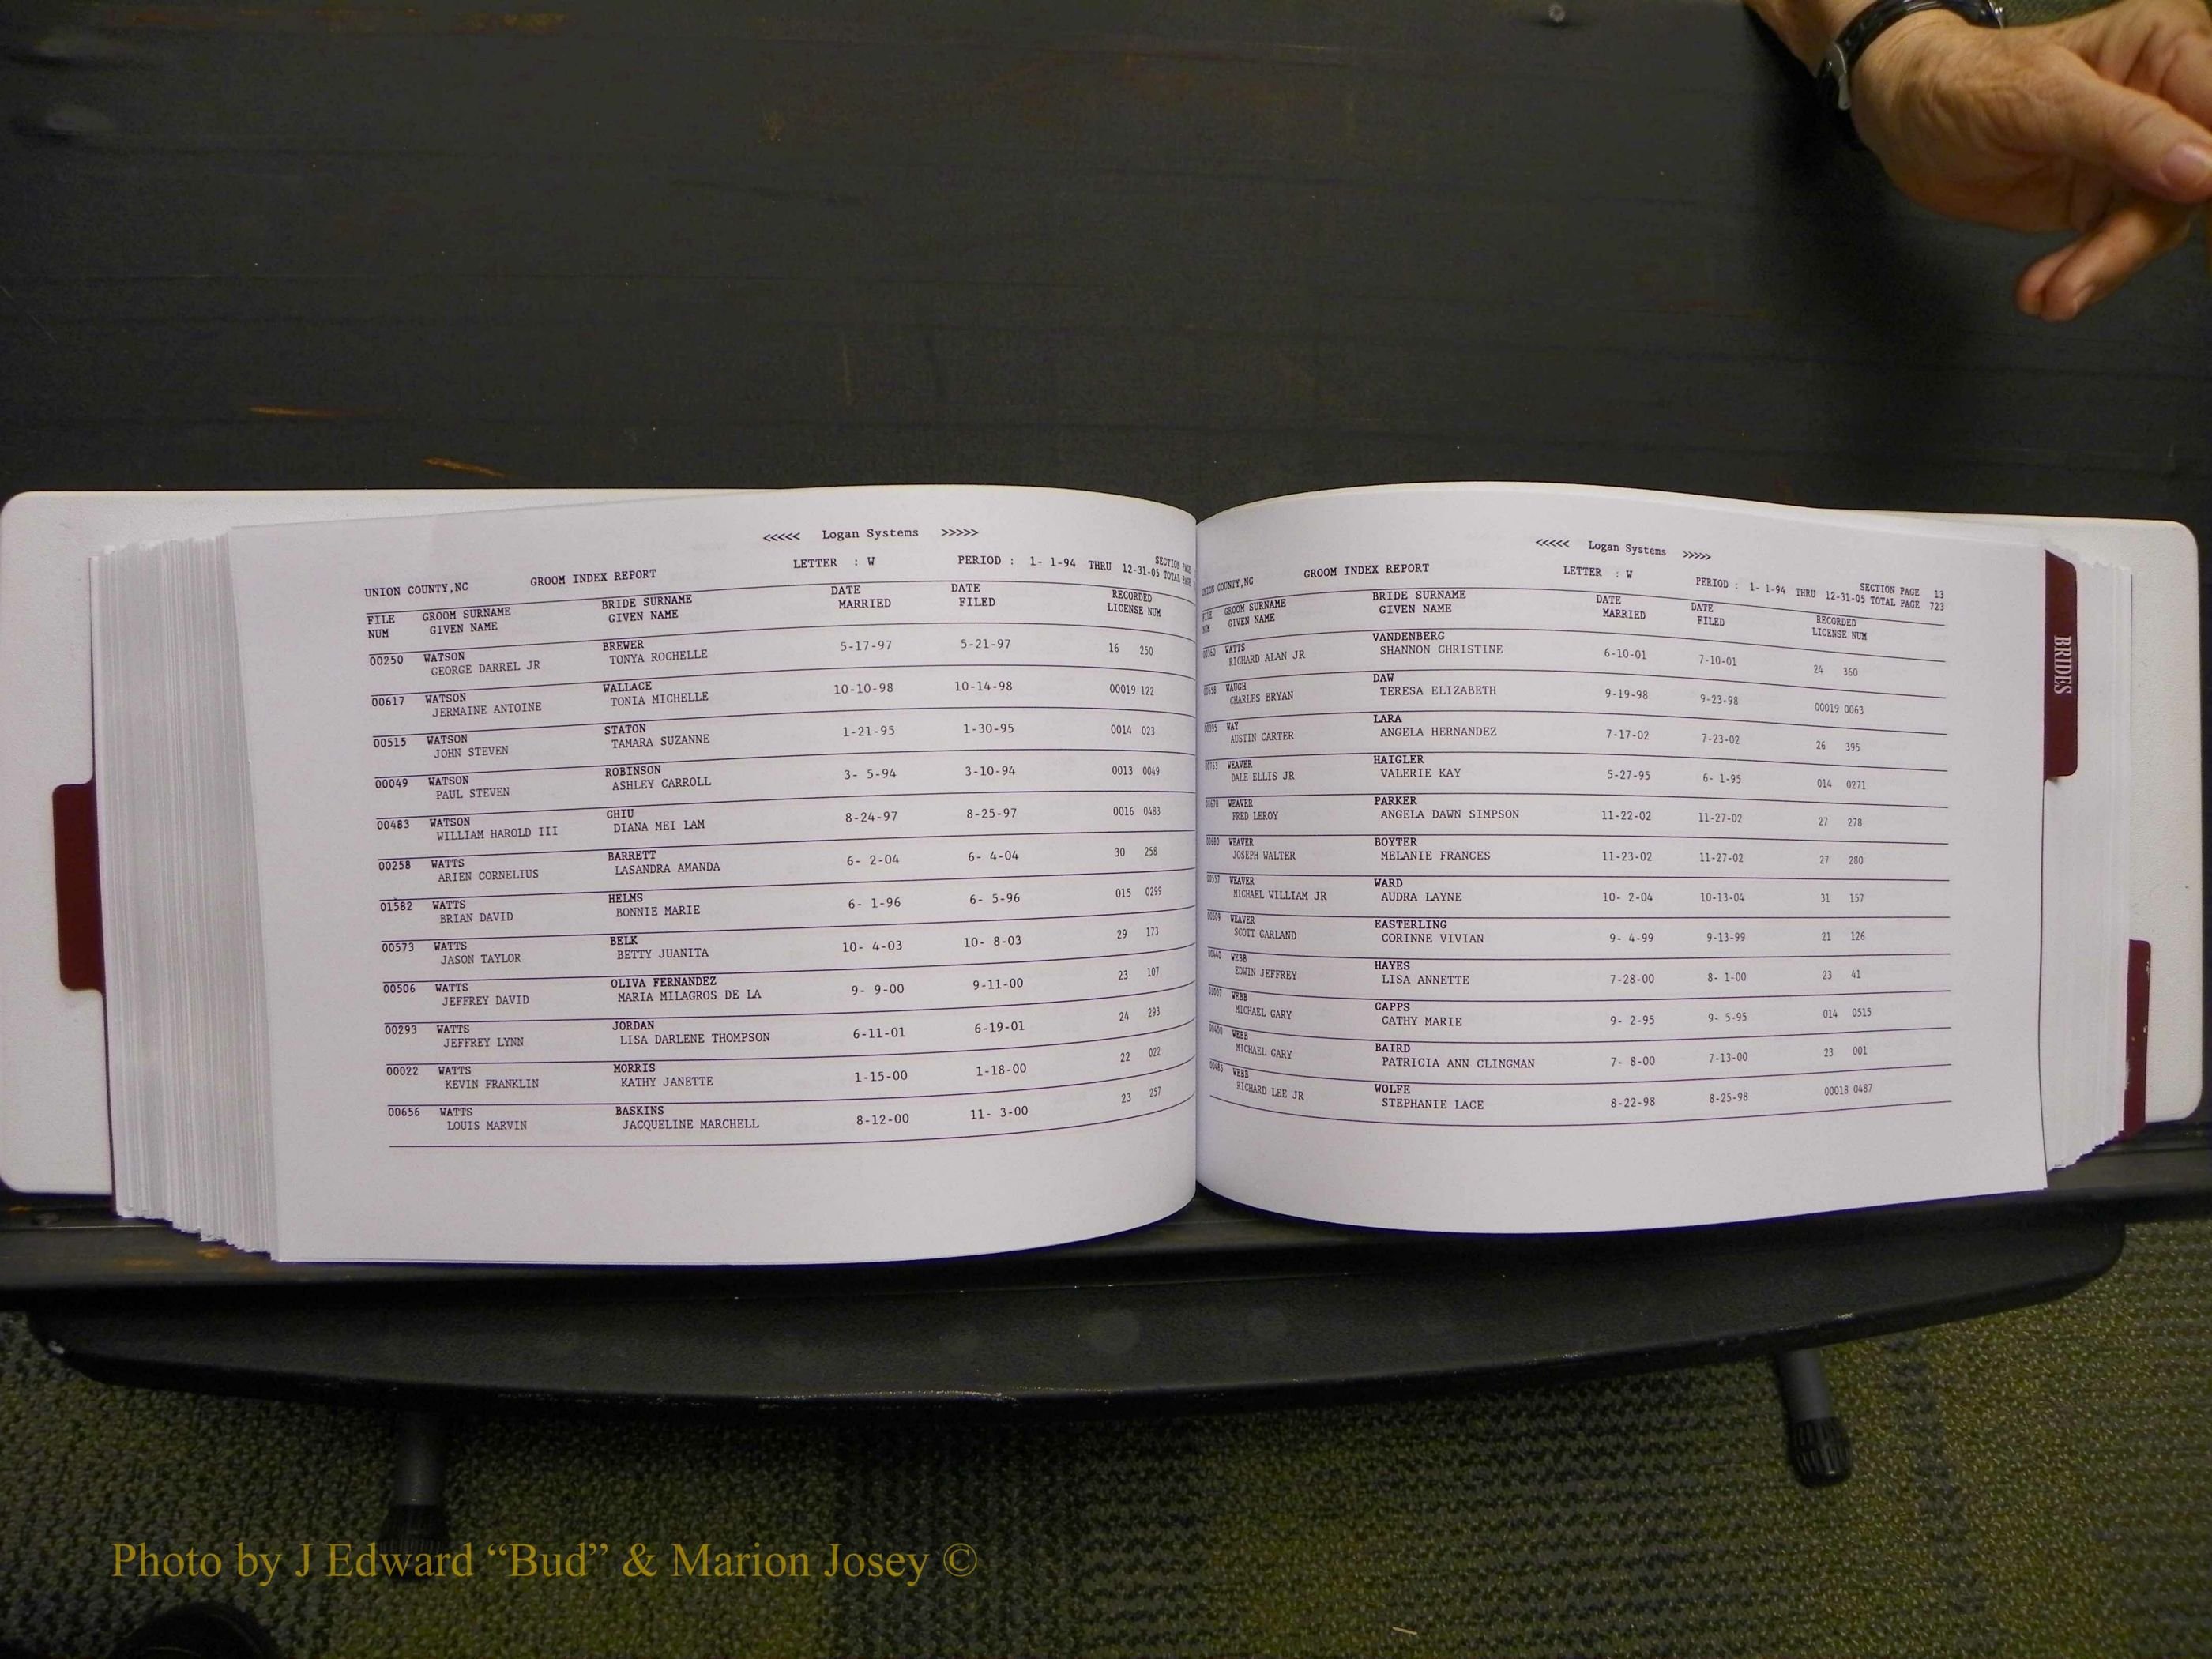 <<<<< Logan Systems >>>>>
UNION COUNTY,NC GROOM INDEX REPORT LETTER : W PERIOD : 1- 1-94 THRU 12-31-05 SECTION PAGE
TOTAL PAGE
FILE GROOM SURNAME BRIDE SURNAME DATE DATE RECORDED
NUM GIVEN NAME GIVEN NAME MARRIED FILED LICENSE NUM
00250 WATSON BREWER 5-17-97 5-21-97 16 250
GEORGE DARREL JR TONYA ROCHELLE
00617 WATSON WALLACE 10-10-98 10-14-98 00019 122
JERMAINE ANTOINE TONIA MICHELLE
00515 WATSON STATON 1-21-95 1-30-95 0014 023
JOHN STEVEN TAMARA SUZANNE
00049 WATSON ROBINSON 3- 5-94 3-10-94 0013 0049
PAUL STEVEN ASHLEY CARROLL
00483 WATSON CHIU 8-24-97 8-25-97 0016 0483
WILLIAM HAROLD III DIANA MEI LAM
00258 WATTS BARRETT 6- 2-04 6- 4-04 30 258
ARIEN CORNELIUS LASANDRA AMANDA
01582 WATTS HELMS 6- 1-96 6- 5-96 015 0299
BRIAN DAVID BONNIE MARIE
00573 WATTS BELK 10- 4-03 10- 8-03 29 173
JASON TAYLOR BETTY JUANITA
00506 WATTS OLIVA FERNANDEZ 9- 9-00 9-11-00 23 107
JEFFREY DAVID MARIA MILAGROS DE LA
00293 WATTS JORDAN 6-11-01 6-19-01 24 293
JEFFREY LYNN LISA DARLENE THOMPSON
00022 WATTS MORRIS 1-15-00 1-18-00 22 022
KEVIN FRANKLIN KATHY JANETTE
00656 WATTS BASKINS 8-12-00 11- 3-00 23 257
LOUIS MARVIN JACQUELINE MARCHELL
<<<<< Logan Systems >>>>>
UNION COUNTY,NC GROOM INDEX REPORT LETTER : W PERIOD : 1- 1-94 THRU 12-31-05 SECTION PAGE 13
TOTAL PAGE 723
FILE GROOM SURNAME BRIDE SURNAME DATE DATE RECORDED
NUM GIVEN NAME GIVEN NAME MARRIED FILED LICENSE NUM
WATTS VANDENBERG 6-10-01 7-10-01 24 360
RICHARD ALAN JR SHANNON CHRISTINE
00558 WAUGH DAW 9-19-98 9-23-98 00019 0063
CHARLES BRYAN TERESA ELIZABETH
00395 WAY LARA 7-17-02 7-23-02 26 395
AUSTIN CARTER ANGELA HERNANDEZ
00763 WEAVER HAIGLER 5-27-95 6- 1-95 014 0271
DALE ELLIS JR VALERIE KAY
00678 WEAVER PARKER 11-22-02 11-27-02 27 278
FRED LEROY ANGELA DAWN SIMPSON
00680 WEAVER BOYTER 11-23-02 11-27-02 27 280
JOSEPH WALTER MELANIE FRANCES
00557 WEAVER WARD 10- 2-04 10-13-04 31 157
MICHAEL WILLIAM JR AUDRA LAYNE
00509 WEAVER EASTERLING 9- 4-99 9-13-99 21 126
SCOTT GARLAND CORINNE VIVIAN
00440 WEBB HAYES 7-28-00 8- 1-00 23 41
EDWIN JEFFREY LISA ANNETTE
01007 WEBB CAPPS 9- 2-95 9- 5-95 014 0515
MICHAEL GARY CATHY MARIE
00400 WEBB BAIRD 7- 8-00 7-13-00 23 001
MICHAEL GARY PATRICIA ANN CLINGMAN
WEBB WOLFE 8-22-98 8-25-98 00018 0487
RICHARD LEE JR STEPHANIE LACE
BRIDES
Photo by J Edward “Bud” & Marion Josey ©